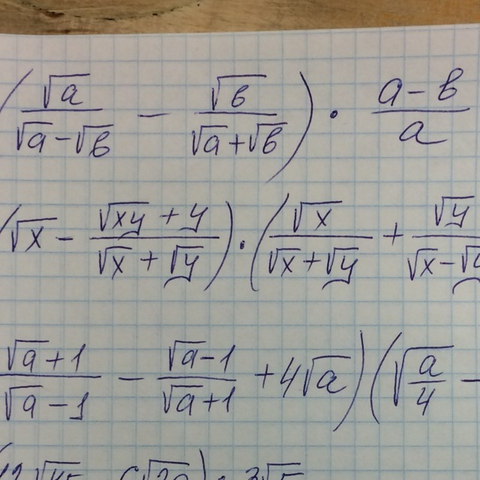 (√a/(√a-√b) - √b/(√a+√b)) · (a-b)/a
(√x - (√xy + y)/(√x + √y)) · (√x/(√x+√y) + √y/(√x-√y
(√a+1)/(√a-1) - (√a-1)/(√a+1) + 4√a)(√(a/4) -